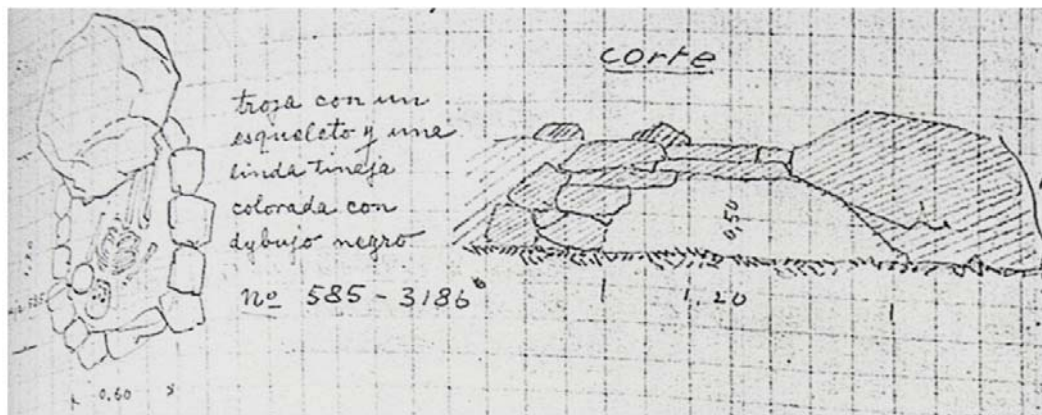 corte
troja con un
esqueleto y une
linda tineja
colorada con
dybujo negro
nº 585-3186
0,50
1.20
0.60